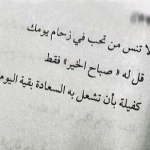 لا تنس من تحب في زحام يومك
قل له « صباح الخير » فقط
كفيلة بأن تشعل به السعادة بقية اليوم